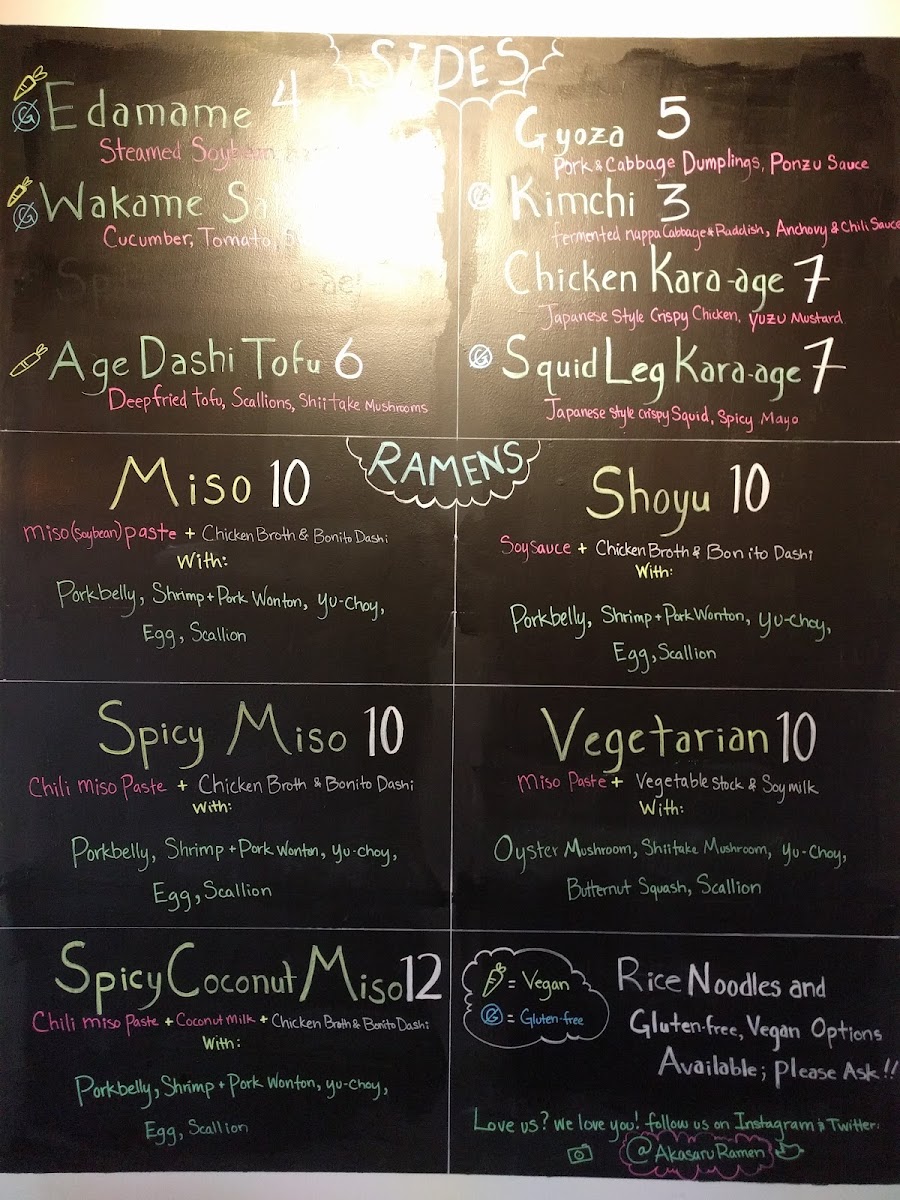 SIDES
Edamame 4
Steamed Soybean
Wakame
Cucumber, Tomato,
Age Dashi Tofu 6
Deepfried tofu, Scallions, Shiitake Mushrooms
Gyoza 5
Pork & Cabbage Dumplings, Ponzu Sauce
G Kimchi 3
fermented nappa Cabbage & Raddish, Anchovy & Chili Sauce
Chicken Kara-age 7
Japanese Style Crispy Chicken, Yuzu Mustard
G Squid Leg Kara-age 7
Japanese style crispy Squid, Spicy Mayo
RAMENS
Miso 10
miso (soybean) paste + Chicken Broth & Bonito Dashi
With:
Porkbelly, Shrimp + Pork Wonton, yu-choy,
Egg, Scallion
Shoyu 10
Soysauce + Chicken Broth & Bonito Dashi
With:
Porkbelly, Shrimp + Pork Wonton, yu-choy,
Egg, Scallion
Spicy Miso 10
Chili miso Paste + Chicken Broth & Bonito Dashi
With:
Porkbelly, Shrimp + Pork Wonton, yu-choy,
Egg, Scallion
Vegetarian 10
Miso Paste + Vegetable Stock & Soymilk
With:
Oyster Mushroom, Shiitake Mushroom, yu-choy,
Butternut Squash, Scallion
Spicy Coconut Miso 12
Chili miso Paste + Coconut Milk + Chicken Broth & Bonito Dashi
With:
Porkbelly, Shrimp + Pork Wonton, yu-choy,
Egg, Scallion
= Vegan
G = Gluten-free
Rice Noodles and
Gluten-free, Vegan Options
Available; Please Ask!!
Love us? We love you! follow us on Instagram & Twitter:
@AkasaruRamen